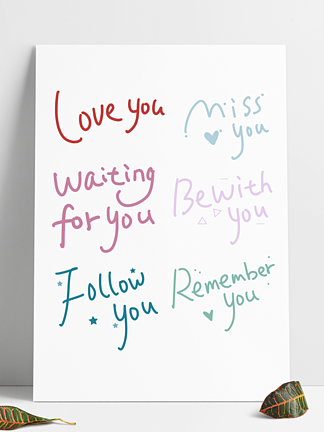 Love you
Miss
you
Waiting
for you
BeWith
you
Follow
you
Remember
you